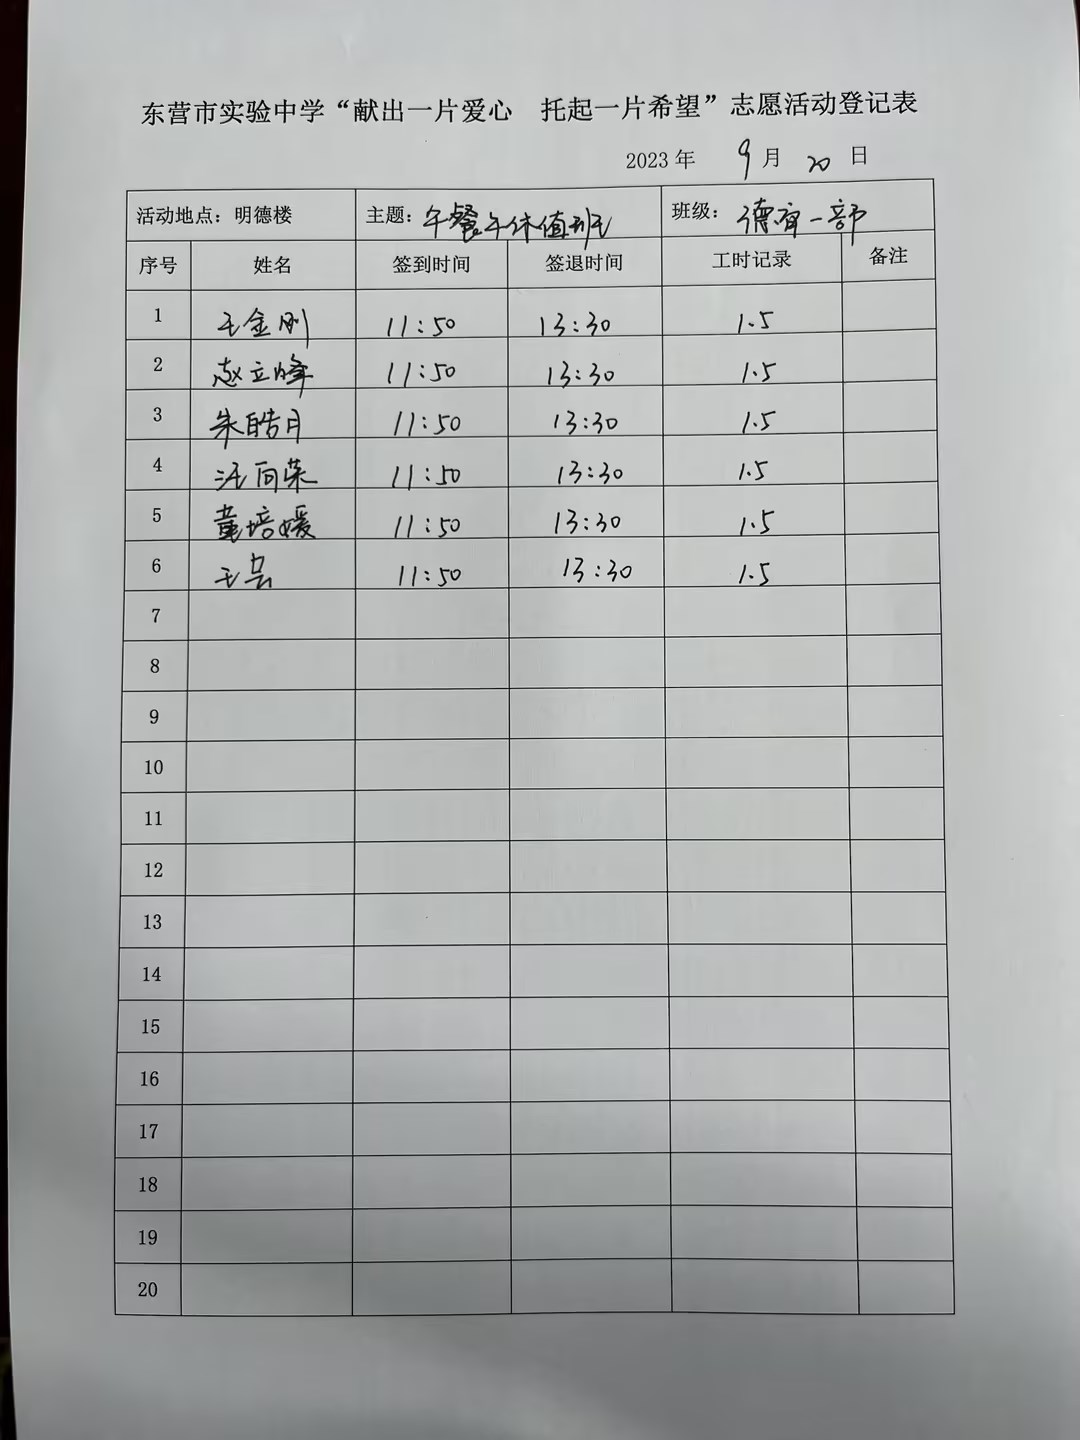 东营市实验中学“献出一片爱心 托起一片希望”志愿活动登记表
2023 年 9 月 20 日
活动地点：明德楼 主题：午餐午休值班 班级：德育一部
序号 姓名 签到时间 签退时间 工时记录 备注
1 王金刚 11:50 13:30 1.5
2 赵立峰 11:50 13:30 1.5
3 朱皓月 11:50 13:30 1.5
4 汪向荣 11:50 13:30 1.5
5 董培媛 11:50 13:30 1.5
6 王芸 11:50 13:30 1.5
7
8
9
10
11
12
13
14
15
16
17
18
19
20